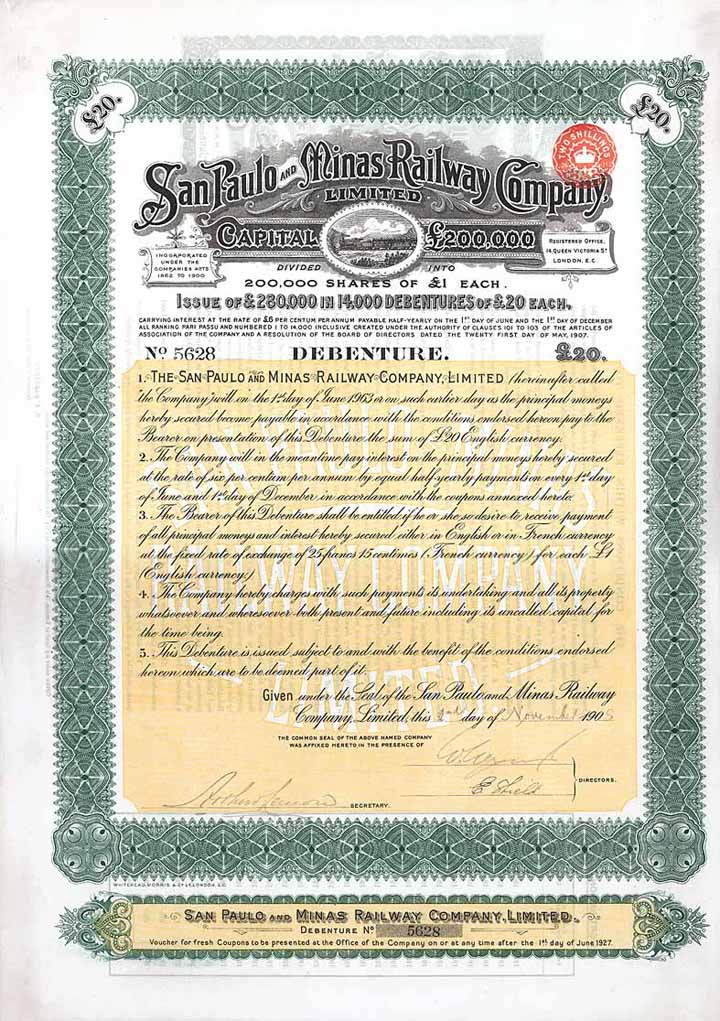 £20.
£20.
TWO SHILLINGS
San Paulo AND Minas Railway Company,
LIMITED
CAPITAL £200,000
INCORPORATED
UNDER THE
COMPANIES ACTS
1862 TO 1900
REGISTERED OFFICE,
14, QUEEN VICTORIA ST
LONDON, E.C.
DIVIDED INTO
200,000 SHARES OF £1 EACH.
ISSUE OF £280,000 IN 14,000 DEBENTURES OF £20 EACH.
CARRYING INTEREST AT THE RATE OF £6 PER CENTUM PER ANNUM PAYABLE HALF-YEARLY ON THE 1ST DAY OF JUNE AND THE 1ST DAY OF DECEMBER
ALL RANKING PARI PASSU AND NUMBERED 1 TO 14,000 INCLUSIVE CREATED UNDER THE AUTHORITY OF CLAUSES 101 TO 103 OF THE ARTICLES OF
ASSOCIATION OF THE COMPANY AND A RESOLUTION OF THE BOARD OF DIRECTORS DATED THE TWENTY FIRST DAY OF MAY, 1907.
No 5628 DEBENTURE. £20.
1. THE SAN PAULO AND MINAS RAILWAY COMPANY, LIMITED (hereinafter called
the Company) will on the 1st day of June 1963 or on such earlier day as the principal moneys
hereby secured become payable in accordance with the conditions endorsed hereon pay to the
Bearer on presentation of this Debenture the sum of £20 English currency.
2. The Company will in the meantime pay interest on the principal moneys hereby secured
at the rate of six per centum per annum by equal half-yearly payments on every 1st day
of June and 1st day of December in accordance with the coupons annexed hereto.
3. The Bearer of this Debenture shall be entitled if he or she so desire to receive payment
of all principal moneys and interest hereby secured either in English or in French currency
at the fixed rate of exchange of 25 francs 15 centimes (French currency) for each £1
(English currency)
4. The Company hereby charges with such payments its undertaking and all its property
whatsoever and wheresoever both present and future including its uncalled capital for
the time being.
5. This Debenture is issued subject to and with the benefit of the conditions endorsed
hereon which are to be deemed part of it.
Given under the Seal of the San Paulo and Minas Railway
Company, Limited, this 2nd day of November 1908
THE COMMON SEAL OF THE ABOVE NAMED COMPANY
WAS AFFIXED HERETO IN THE PRESENCE OF
DIRECTORS.
SECRETARY.
WHITEHEAD, MORRIS & Co LD LONDON, E.C.
SAN PAULO AND MINAS RAILWAY COMPANY, LIMITED.
DEBENTURE No 5628
Voucher for fresh Coupons to be presented at the Office of the Company on or at any time after the 1st day of June 1927.